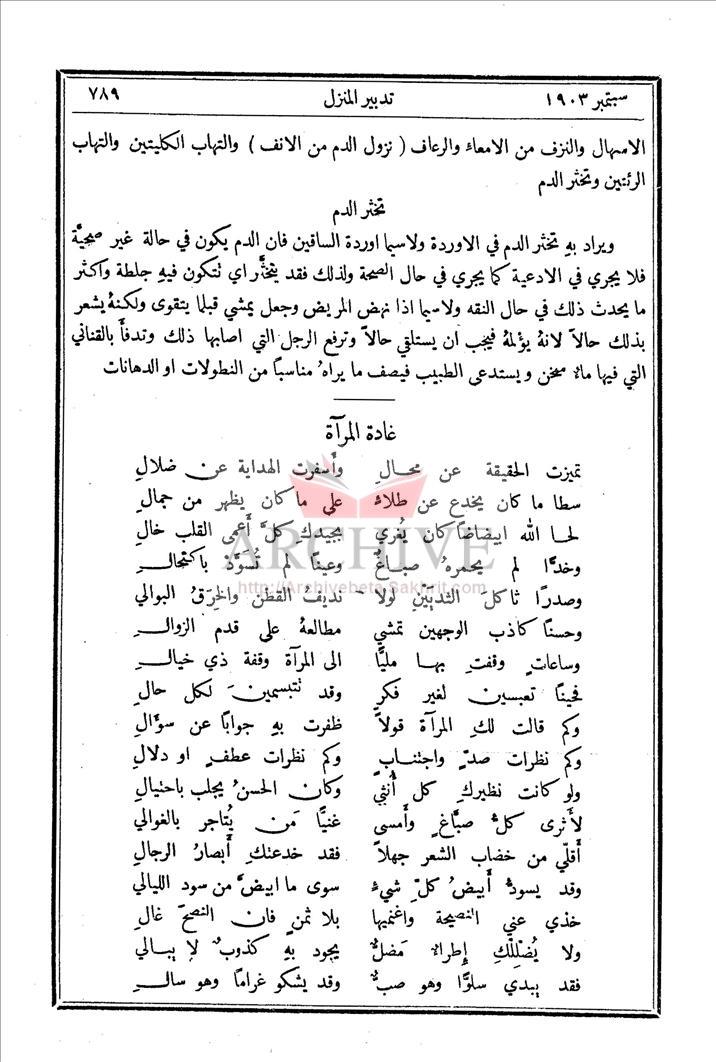 سبتمبر ١٩٠٣ تدبير المنزل ٧٨٩
الاسهال والنزف من الامعاء والرعاف ( نزول الدم من الانف ) والتهاب الكليتين والتهاب
الرئتين وتخثر الدم
تخثر الدم
ويراد بهِ تخثر الدم في الاوردة ولاسيما اوردة الساقين فان الدم يكون في حالة غير صحيَّة
فلا يجري في الادعية كما يجري في حال الصحة ولذلك فقد يتخثَّر اي تتكون فيهِ جلطة واكثر
ما يحدث ذلك في حال النقه ولاسيما اذا نهض المريض وجعل يمشي قبلما يتقوى ولكنهُ يشعر
بذلك حالاً لانهُ يؤلمهُ فيجب ان يستلقي حالاً وترفع الرجل التي اصابها ذلك وتدفأ بالقناني
التي فيها ماء سخن ويستدعى الطبيب فيصف ما يراهُ مناسبًا من النطولات او الدهانات
غادة المرآة
تميزت الحقيقة عن محالِ وأسفرت الهداية عن ضلالِ
سطا ما كان يخدع عن طلاءٍ على ما كان يظهر من جمالِ
لحا الله ابيضاضًا كان يُغري بجيدكِ كلَّ أعمى القلب خالِ
وخدًّا لم يحمرهُ صباغٌ وعينًا لم تُسَوَّد باكتحالِ
وصدرًا ثاكل الثديين لولا نديفُ القطن والخِرَقُ البوالي
وحسنًا كاذب الوجهين تمشي مطالعهُ على قدم الزوالِ
وساعاتٍ وقفتِ بها مليًّا الى المرآة وقفة ذي خيالِ
فحينًا تعبسين لغير فكرٍ وقد تتبسمينَ لكل حالِ
وكم قالت لكِ المرآة قولاً ظفرت بهِ جوابًا عن سؤالِ
وكم نظرات صدٍّ واجتنابٍ وكم نظرات عطفٍ او دلالِ
ولو كانت نظيركِ كل أنثى وكان الحسنُ يجلب باحتيالِ
لأثرى كلُّ صباغٍ وأمسى غنيًّا مَن يُتاجر بالغوالي
أقلّي من خضاب الشعر جهلاً فقد خدعتكِ أبصارُ الرجالِ
وقد يسودُّ أبيضُ كلّ شيءٍ سوى ما ابيضَّ من سود الليالي
خذي عني النصيحة واغنميها بلا ثمنٍ فان النصحَ غالِ
ولا يُضلِلكِ إطراءٌ مَضلٌّ يجود بهِ كذوبٌ لا يبالي
فقد يبدي سلوًّا وهو صبٌّ وقد يشكو غرامًا وهو سالِ
ARCHIVE
http://Archivebeta.Sakhrit.com